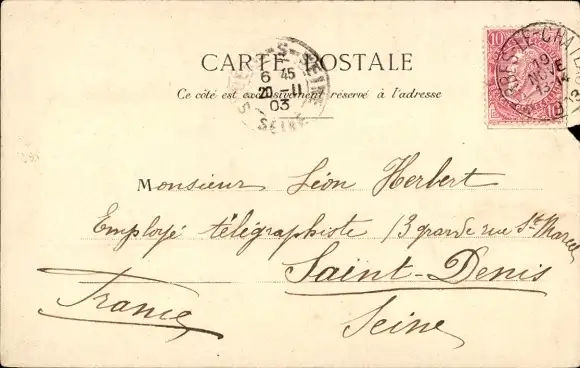 CARTE POSTALE
Ce côté est exclusivement réservé à l'adresse
10
19
NOVE
13
6 45
20 -11
03
SEINE
Monsieur Léon Herbert
Employé télégraphiste 13 grande rue St Marcel
Saint-Denis
France Seine